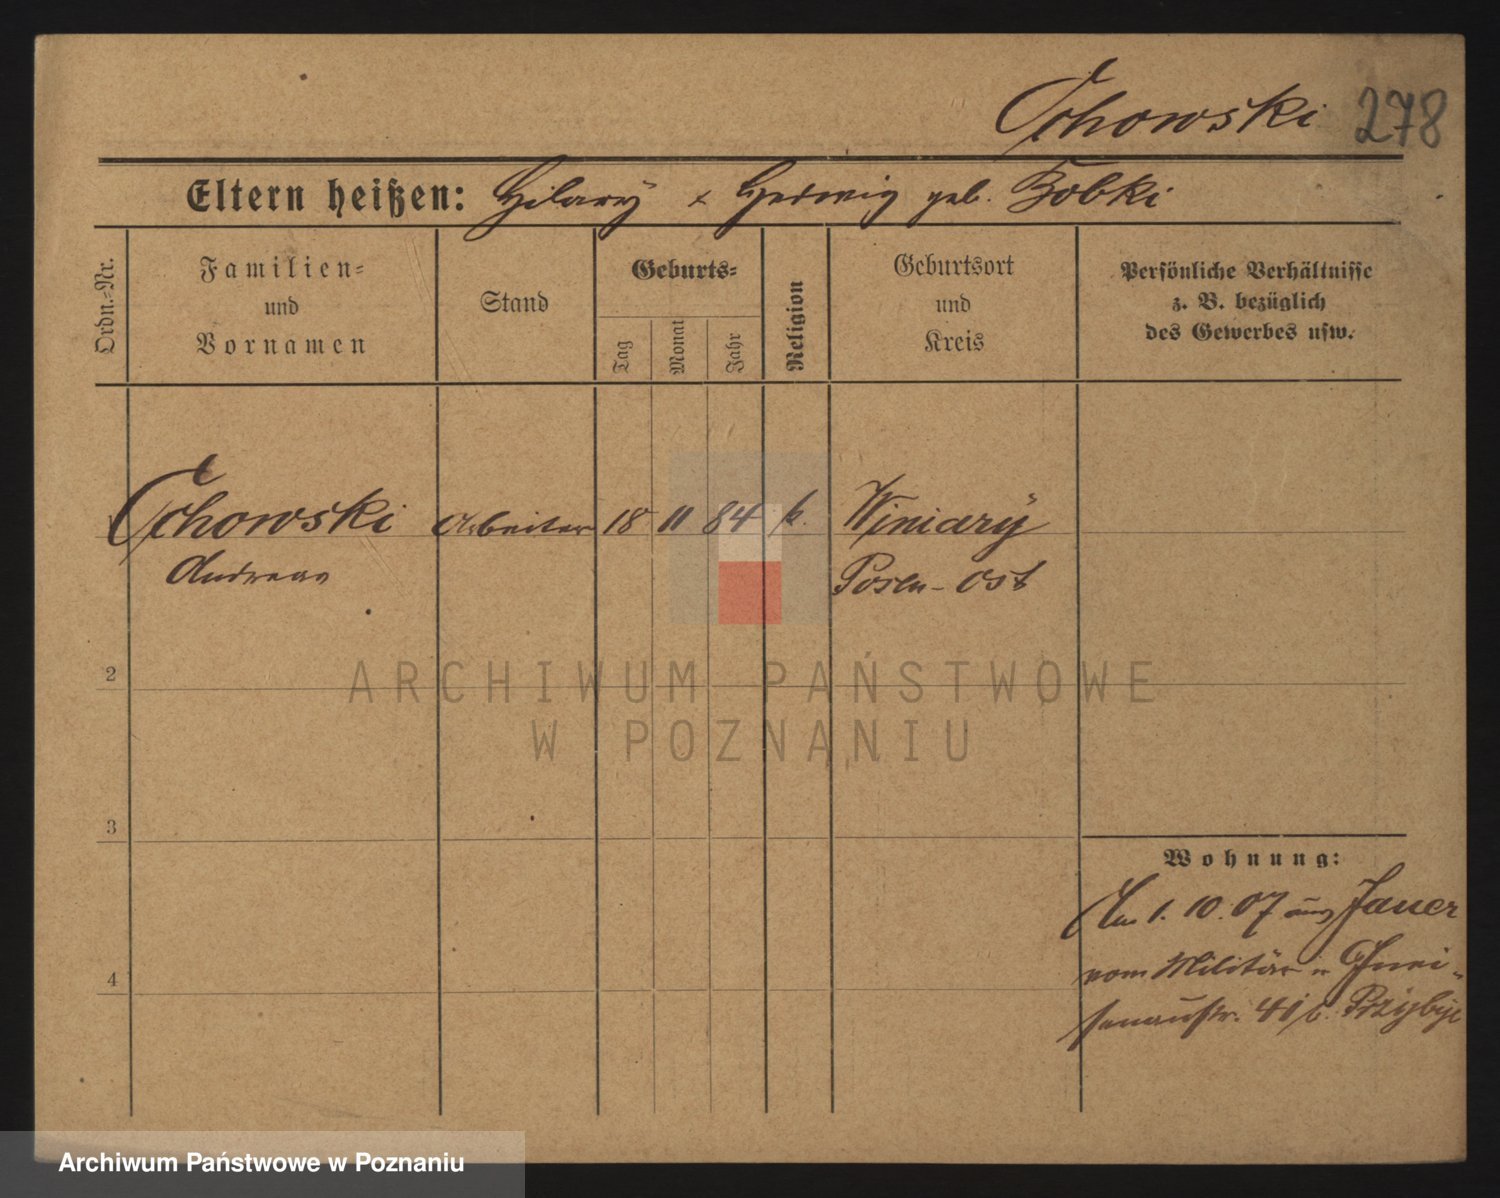 Cichowski 278
Eltern heißen: Hilary & Hedwig geb. Bobki
Ordn.-Nr.
Familien-
und
Vornamen
Stand
Geburts-
Tag
Monat
Jahr
Religion
Geburtsort
und
Kreis
Persönliche Verhältnisse
z. B. bezüglich
des Gewerbes usw.
1 Cichowski Arbeiter 18 11 84 k. Winiary
Andreas Posen-Ost
2
ARCHIWUM PAŃSTWOWE
W POZNANIU
3
Wohnung:
Am 1. 10. 07 aus Jauer
vom Militär n Gnei-
4
senaustr. 41 b.
Archiwum Państwowe w Poznaniu